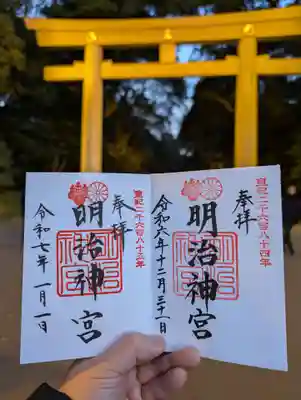 皇紀二千六百八十四年
奉拝
明治神宮
令和六年十二月三十一日
皇紀二千六百八十五年
奉拝
明治神宮
令和七年一月一日